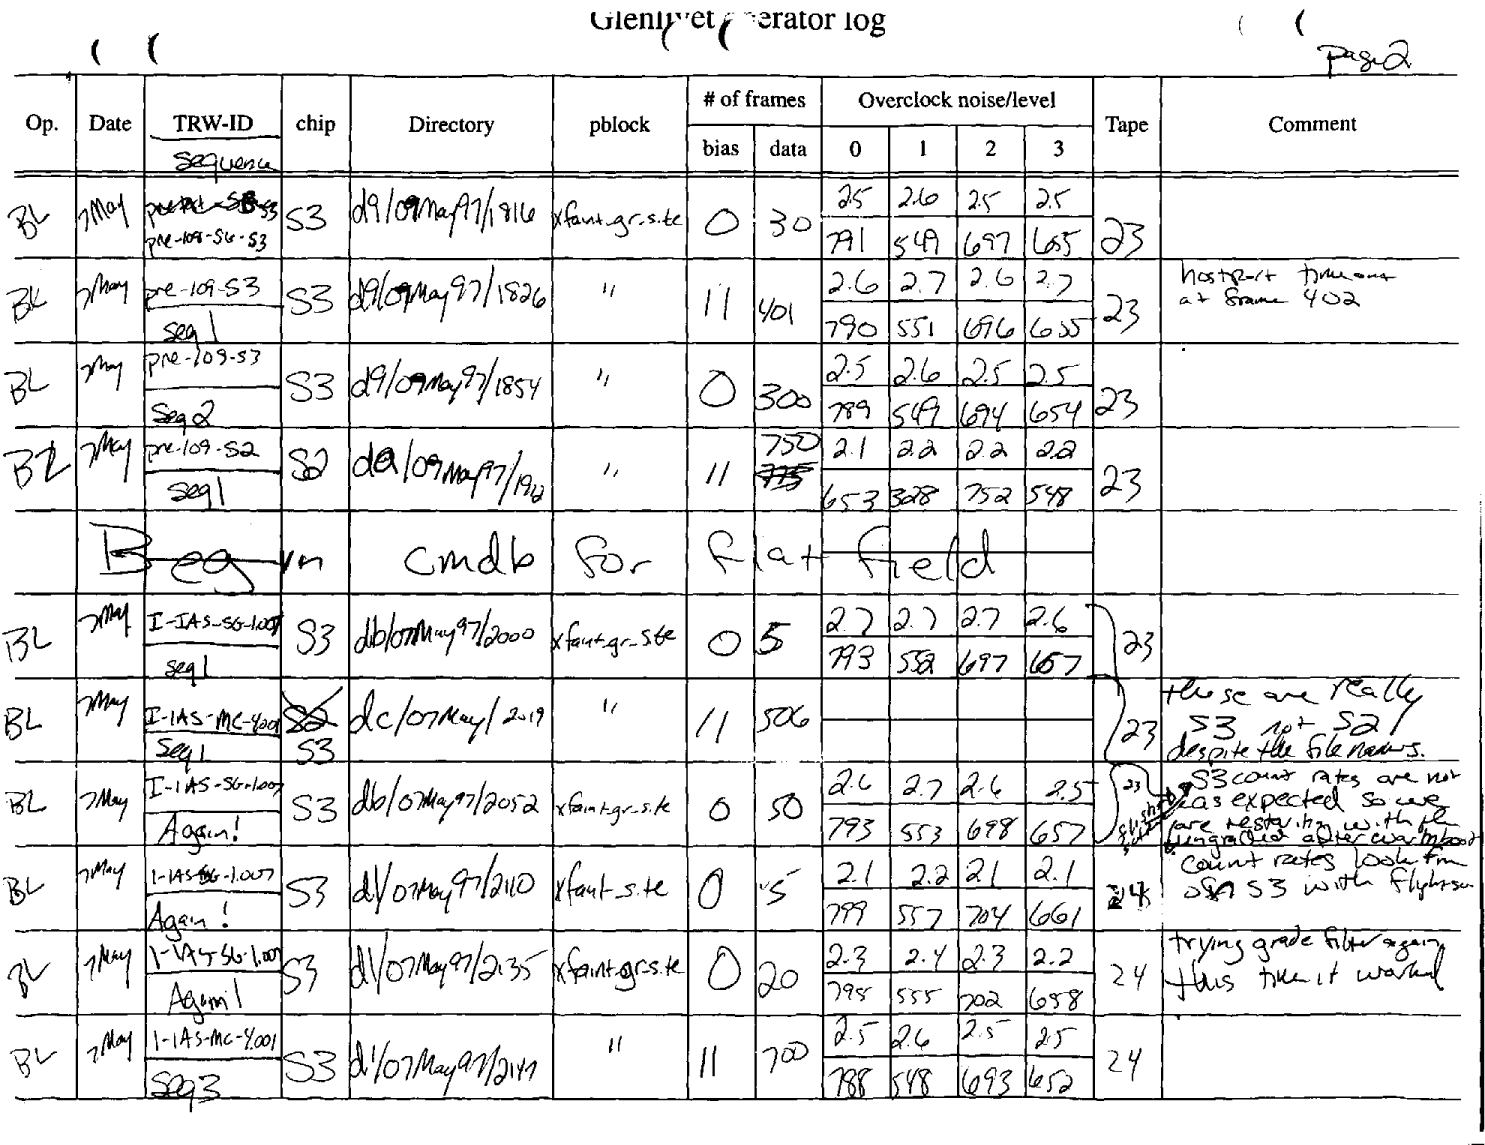 Glenlivet operator log
page 2
Op. Date TRW-ID chip Directory pblock # of frames Overclock noise/level Tape Comment
Sequence bias data 0 1 2 3
BL 7May pre-109-SG-S3 S3 d9/09May97/1816 xfaint.gr.s.te 0 30 2.5 2.6 2.5 2.5 23
791 549 697 655
BL 7May pre-109-S3 S3 d9/09May97/1826 " 11 401 2.6 2.7 2.6 2.7 23 hostport timeout
Seq 1 790 551 696 655 at frame 402
BL 7May pre-109-S3 S3 d9/09May97/1854 " 0 300 2.5 2.6 2.5 2.5 23
Seq 2 789 549 694 654
BL 7May pre-109-S2 S2 da/09May97/1912 " 11 750 2.1 2.2 2.2 2.2 23
seq 1 775 653 328 752 548
Begin cmdb for flat field
BL 7May I-IAS-SG-1.007 S3 db/07May97/2000 xfaint.gr.s.te 0 5 2.7 2.7 2.7 2.6 23
seq 1 793 552 697 657
BL 7May I-IAS-MC-4.001 S2 dc/07May/2019 " 11 506 23 these are really
Seq 1 S3 S3 not S2!
despite the file names.
BL 7May I-IAS-SG-1.007 S3 db/07May97/2052 xfaint.gr.s.te 0 50 2.6 2.7 2.6 2.5 23 S3 count rates are not
Again! 793 553 698 657 as expected so we
are restarting with
ungraded after warmboot
BL 7May I-IAS-SG-1.007 S3 d1/07May97/2110 xfaint.s.te 0 5 2.1 2.2 2.1 2.1 24 count rates look fine
Again! 799 557 704 661 on S3 with
BL 7May I-IAS-SG-1.007 S3 d1/07May97/2135 xfaint.gr.s.te 0 20 2.3 2.4 2.3 2.2 24 trying grade filter again
Again! 795 555 702 658 this time it worked
BL 7May I-IAS-MC-4.001 S3 d1/07May97/2147 " 11 700 2.5 2.6 2.5 2.5 24
Seq 3 788 548 693 652